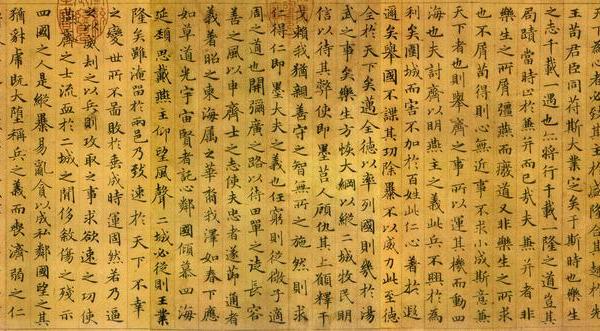 天下為心者必致其主於盛隆合其趣於先
王苟君臣同符斯大業定矣于斯時也樂生
之志千載一遇也亦將行千載一隆之道豈其
局蹟當時止於兼并而已哉夫兼并者非
樂生之所屑彊燕而廢道又非樂生之所求
也不屑苟得則心無近事不求小成斯意兼
天下者也則舉齊之事所以運其機而動四
海也夫討齊以明燕主之義此兵不興於為
利矣圍城而害不加於百姓此仁心著於遐
邇矣舉國不謀其功除暴不以威力此至德
全於天下矣邁全德以率列國則幾於湯
武之事矣樂生方恢大綱以縱二城牧民明
信以待其弊使即墨莒人顧仇其上願釋干
戈賴我猶親善守之智無所之施然則求
仁得仁即墨大夫之義也任窮則從微子適
周之道也開彌廣之路以待田單之徒長容
善之風以申齊士之志使夫忠者遂節通者
義著昭之東海屬之華裔我澤如春下應
如草道光宇宙賢者託心鄰國傾慕四海
延頸思戴燕主仰望風聲二城必從則王業
隆矣雖淹留於兩邑乃致速於天下不幸
之變世所不圖敗於垂成時運固然若乃逼
之以威劫之以兵則攻取之事求欲速之功使
燕齊之士流血於二城之閒侈殺傷之殘示
四國之人是縱暴易亂貪以成私鄰國望之其
猶豺虎既大墮稱兵之義而喪濟弱之仁